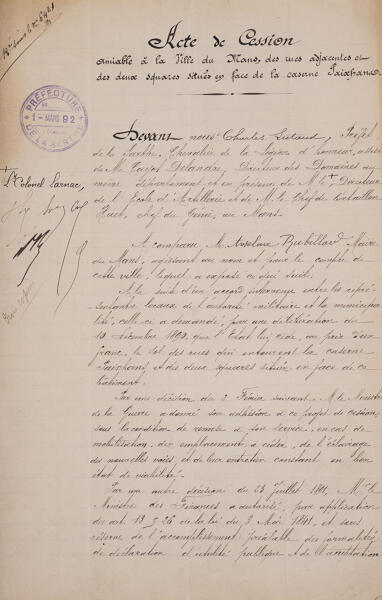 Acte de Cession
amiable à la Ville du Mans, des rues adjacentes et
des deux squares situés en face de la caserne Paixhans.
PRÉFECTURE
1 - MARS 92
DE LA SARTHE
Devant nous Charles Lutaud, Préfet
de la Sarthe, Chevalier de la Légion d'honneur, assisté
de M. Delandre, Directeur des Domaines au
même département et en présence de M. le + Directeur
de l'École d'Artillerie et de M. le Chef de Bataillon
Huet, chef du Génie, au Mans.
+ Lt Colonel Sarnac,
A comparu M. Anselme Rubillard Maire
du Mans, agissant au nom et pour le compte de
cette ville; lequel a exposé ce qui suit:
A la suite d'un accord intervenu entre les repré-
sentants locaux de l'autorité militaire et la municipa-
lité, celle-ci a demandé, par une délibération du
19 Décembre 1890, que l'État lui cède, au prix d'un
franc, le sol des rues qui entourent la caserne
Paixhans, et des deux squares situés en face de ce
bâtiment.
Par une décision du 2 Février suivant, M. le Ministre
de la Guerre a donné son adhésion à ce projet de cession,
sous la condition de remise à son service, en cas de
mobilisation, des emplacements à céder, de l'éclairage
des nouvelles voies, et de leur entretien constant en bon
état de viabilité.
Par un autre décision du 23 Juillet 1891, M. le
Ministre des Finances a autorisé, par application
des art. 13 & 26 de la loi du 3 Mai 1841, et sous
réserve de l'accomplissement préalable des formalités
de déclaration d'utilité publique et de l'acceptation